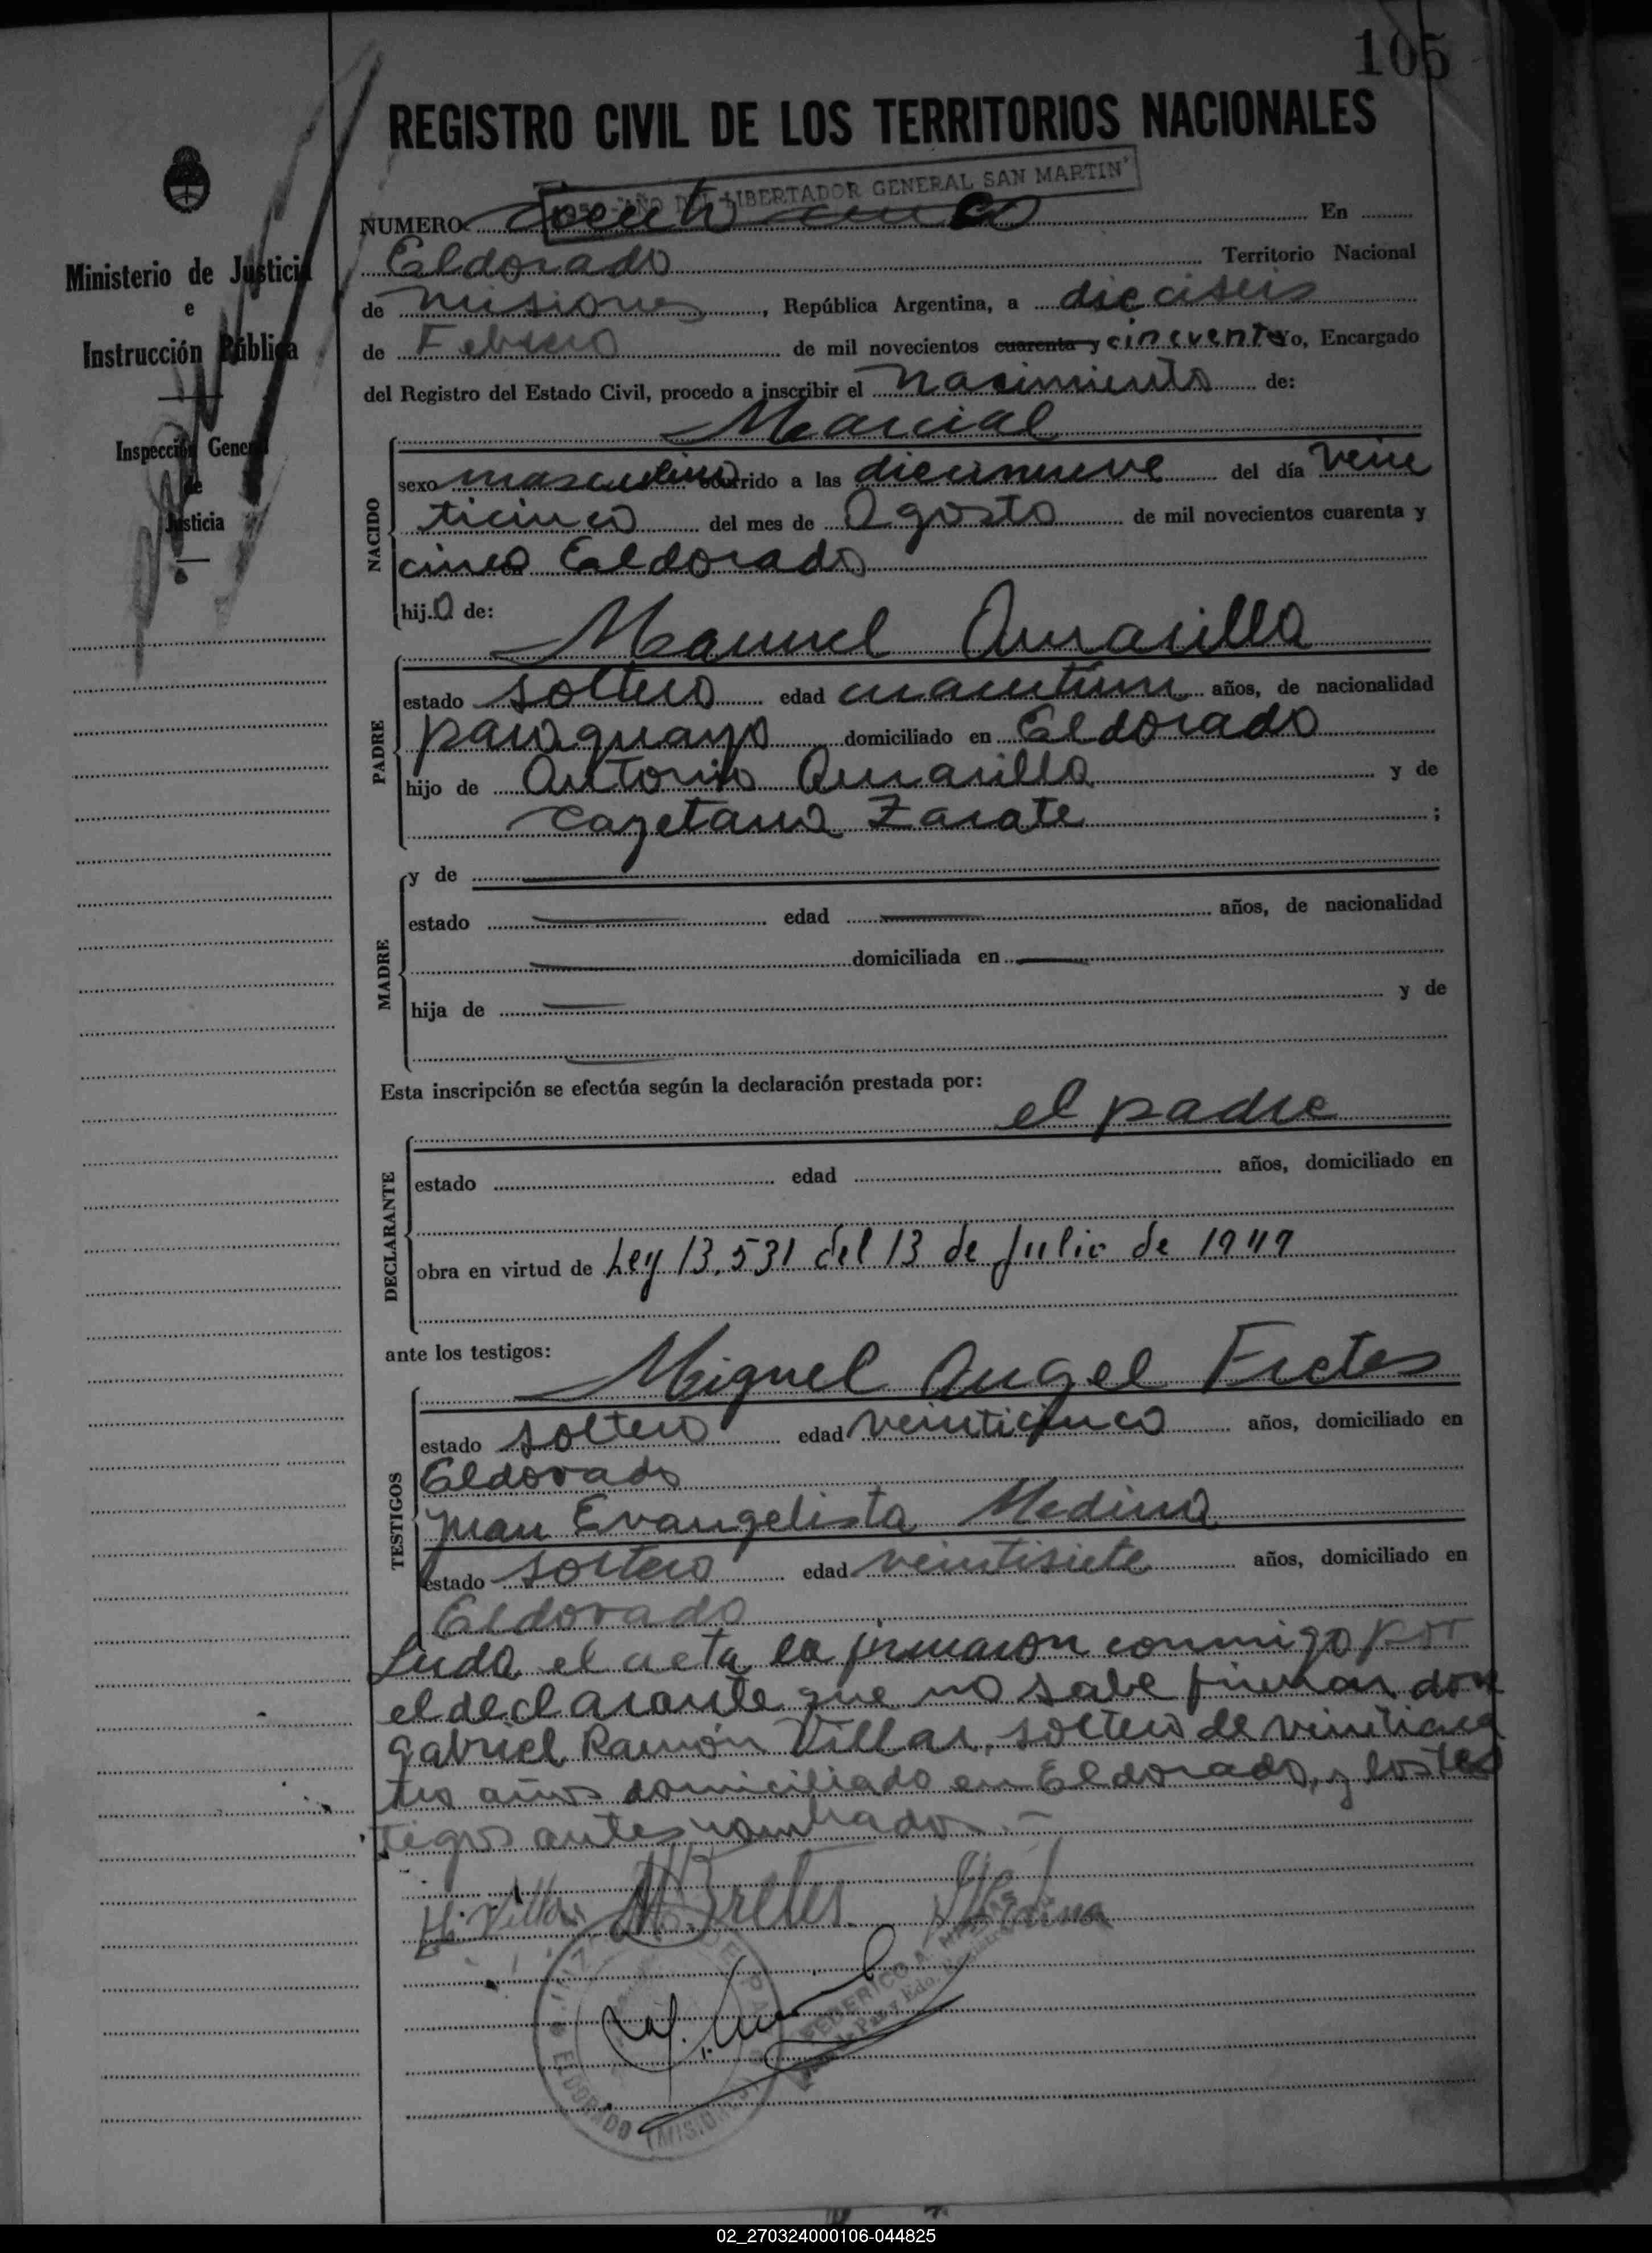 105
REGISTRO CIVIL DE LOS TERRITORIOS NACIONALES
AÑO DEL LIBERTADOR GENERAL SAN MARTIN"
Ministerio de Justicia
e
Instrucción Pública
Inspección General
de
Justicia
NUMERO ciento cinco En
Eldorado Territorio Nacional
de Misiones, República Argentina, a dieciseis
de Febrero de mil novecientos cuarenta y cincuenta Yo, Encargado
del Registro del Estado Civil, procedo a inscribir el nacimiento de:
Marcial
NACIDO
sexo masculino ocurrido a las diecinueve del día vein
ticinco del mes de Agosto de mil novecientos cuarenta y
cinco Eldorado
hijo de:
Manuel Amarilla
PADRE
estado soltero edad cuarentiun años, de nacionalidad
paraguayo domiciliado en Eldorado
hijo de Antonio Amarilla y de
Cayetana Zarate ;
MADRE
y de
estado edad años, de nacionalidad
domiciliada en
hija de y de
Esta inscripción se efectúa según la declaración prestada por:
el padre
DECLARANTE
estado edad años, domiciliado en
obra en virtud de Ley 13.531 del 13 de Julio de 1949
ante los testigos:
Miguel Angel Fretes
TESTIGOS
estado soltero edad veinticinco años, domiciliado en
Eldorado
Juan Evangelista Medina
estado soltero edad veintisiete años, domiciliado en
Eldorado
Leida el acta la firmaron conmigo por
el declarante que no sabe firmar don
Gabriel Ramón Villar, soltero de veinticua
tro años domiciliado en Eldorado, y los tes
tigos antes nombrados.-
Villar Fretes Medina
FEDERICO A.
ELDORADO (MISIONES)
02_270324000106-044825